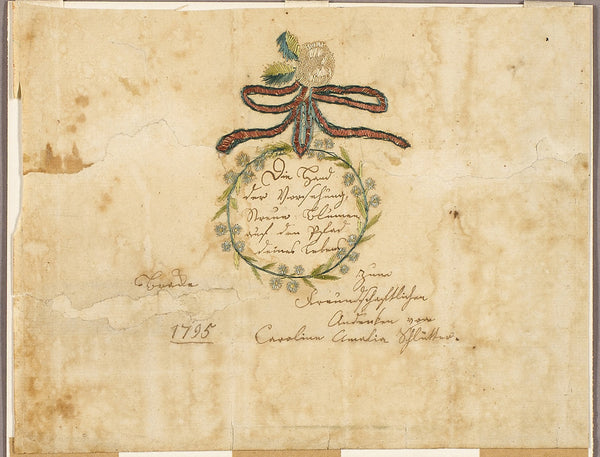 Die Hand
der Vorsehung,
Streue Blumen
auf den Pfad
deines Lebens
Brake
1795
zum
Freundschaftlichen
Andenken von
Carolina Amalia Schlütter.